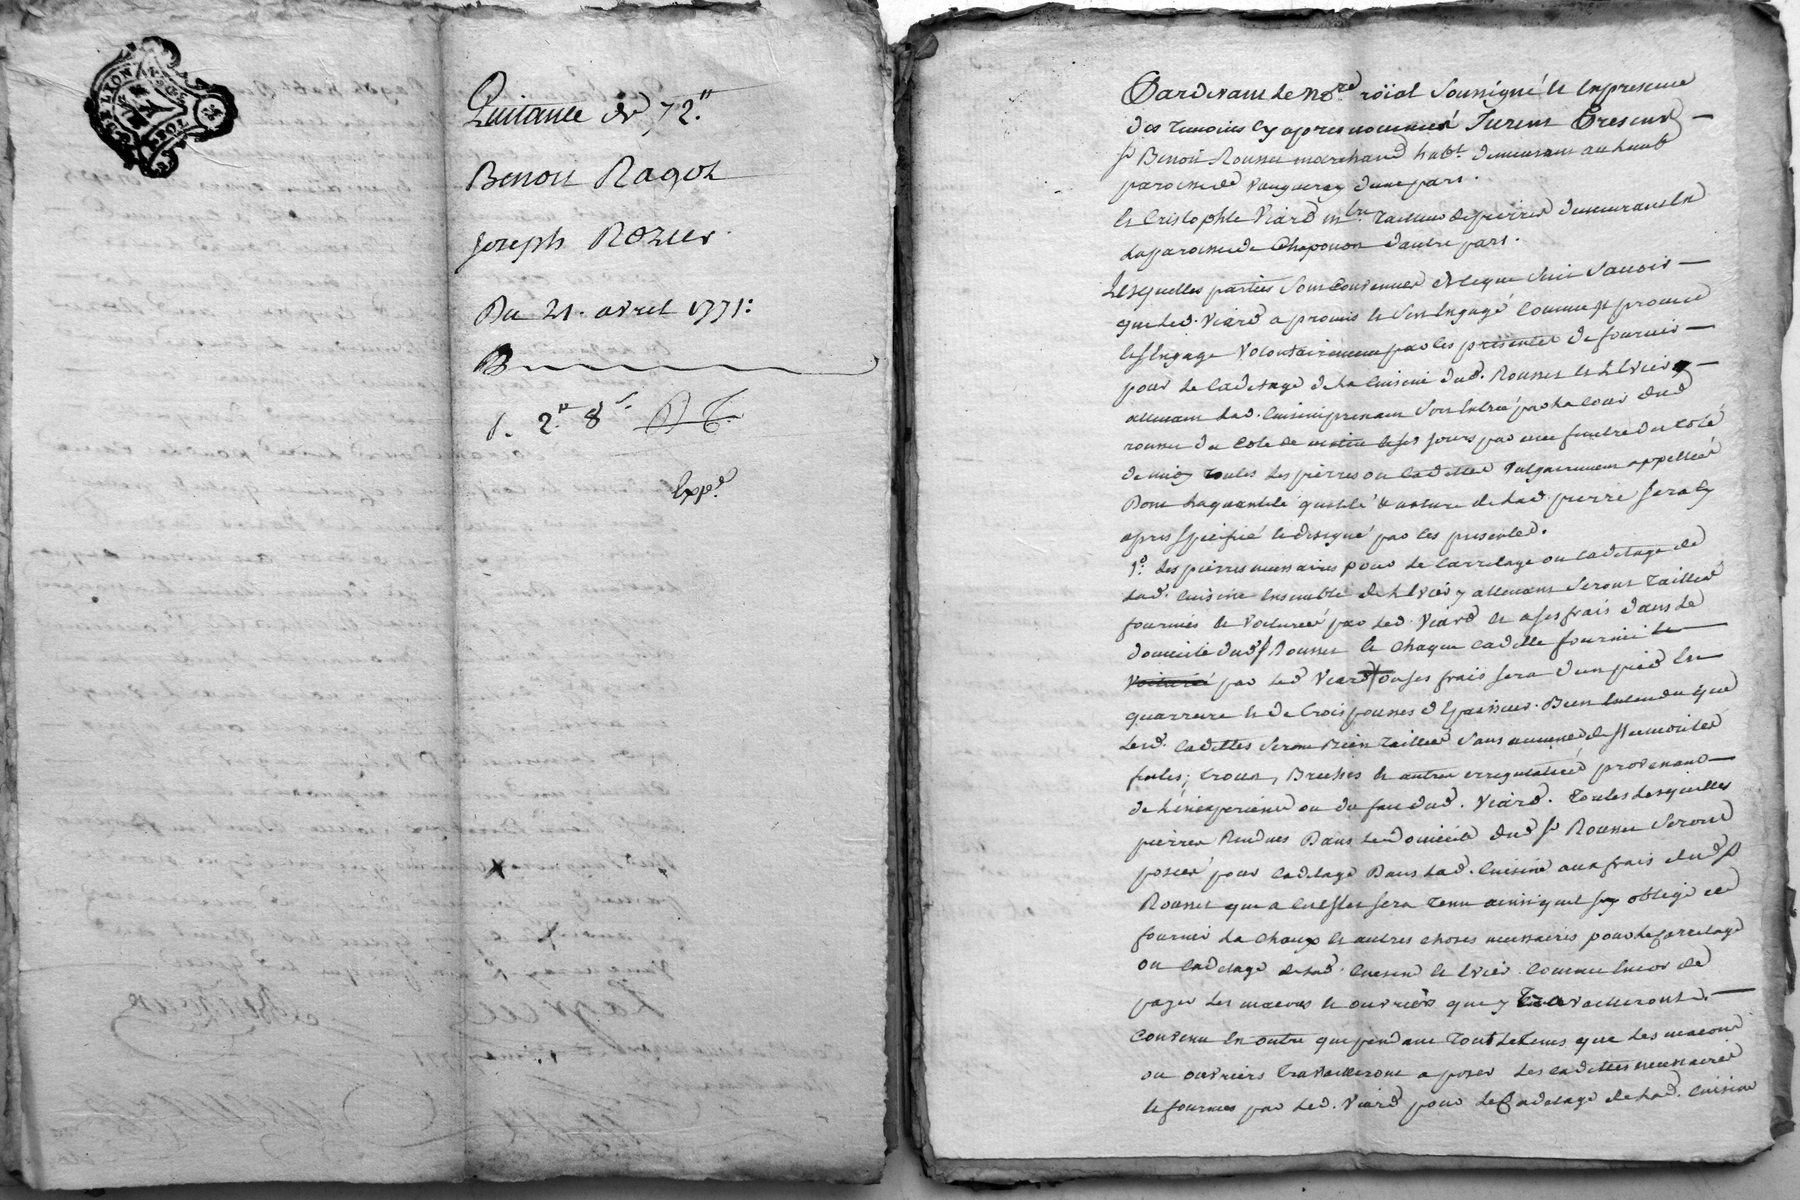 GEN. DE LYON
Quittance de 72.#
Benoit Ragot
Joseph Rozier.
Du 21. avril 1771:
B
p. 2.# 8 s.
Exp.é
Pardevant le no.re roïal soussigné et en presence
des temoins cy apres nommés furent presents
sr Benoit Rousset marchand hab.t demeurant au heub
paroisse de Vaugneray d'une part.
et Cristophle Viard m.tre tailleur de pierres demeurant en
la paroisse de Chaponon d'autre part.
Lesquelles parties sont convenues de ce que suit savoir
que led. Viard a promis et s'est engagé comme il promet
et s'engage volontairement par les presentes de fournir
pour le cadetage de la cuisine dud. Rousset et l'evier
attenant lad. cuisine prenant son entrée par la cour dud
rousset du coté de matin et ses jours par une fenetre du coté
de midy toutes les pierres ou cadettes vulgairement appellées
dont la quantité qualité & nature de lad pierre sera cy
apres specifié et designé par ces presentes.
1.o les pierres necessaires pour le carrelage ou cadetage de
lad. cuisine ensemble de l'evier y attenant seront taillées
fournies et voiturées par led. Viard et a ses frais dans le
domicile dud sr Rousset et chaque cadette fournie et
voituré par led Viard a ses frais sera d'un pied en
quarrure et de trois pouces d'epaisseur. Bien entendu que
lesd. cadettes seront bien taillées sans aucunes
trous, Breches et autres irregularités provenant
de l'inexperience ou du fait dud. Viard. toutes lesquelles
pierres rendues dans le domicile dud sr Rousset seront
posées pour cadetage dans lad. cuisine aux frais dud sr
Rousset que a cet effet sera tenu ainsi qu'il s'y oblige de
fournir la chaux et autres choses necessaires pour le carrelage
ou cadetage de lad. cuisine et evier comme encor de
payer les macons et ouvriers que y travailleront.
Convenu en outre que pendant tout le tems que les macons
ou ouvriers travailleront a poser les cadettes necessaires
et fournies par led. Viard pour le cadetage de lad. cuisine